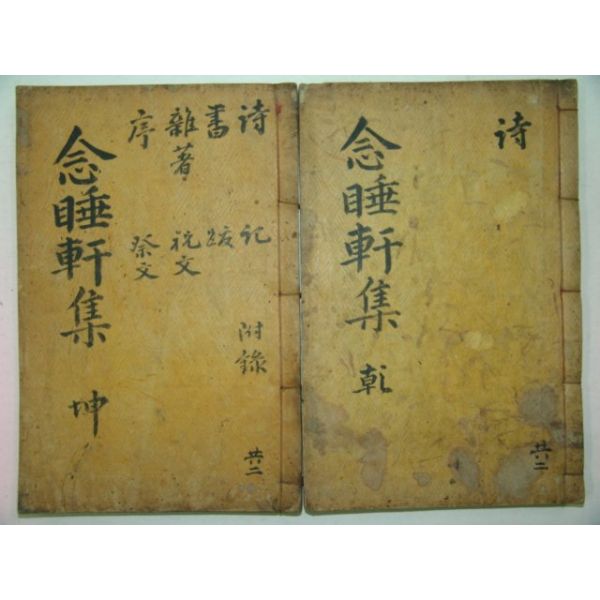 詩
念睡軒集 乾
共二
詩 記 附錄
書 跋
雜著 祝文
序 祭文
念睡軒集 坤
共二